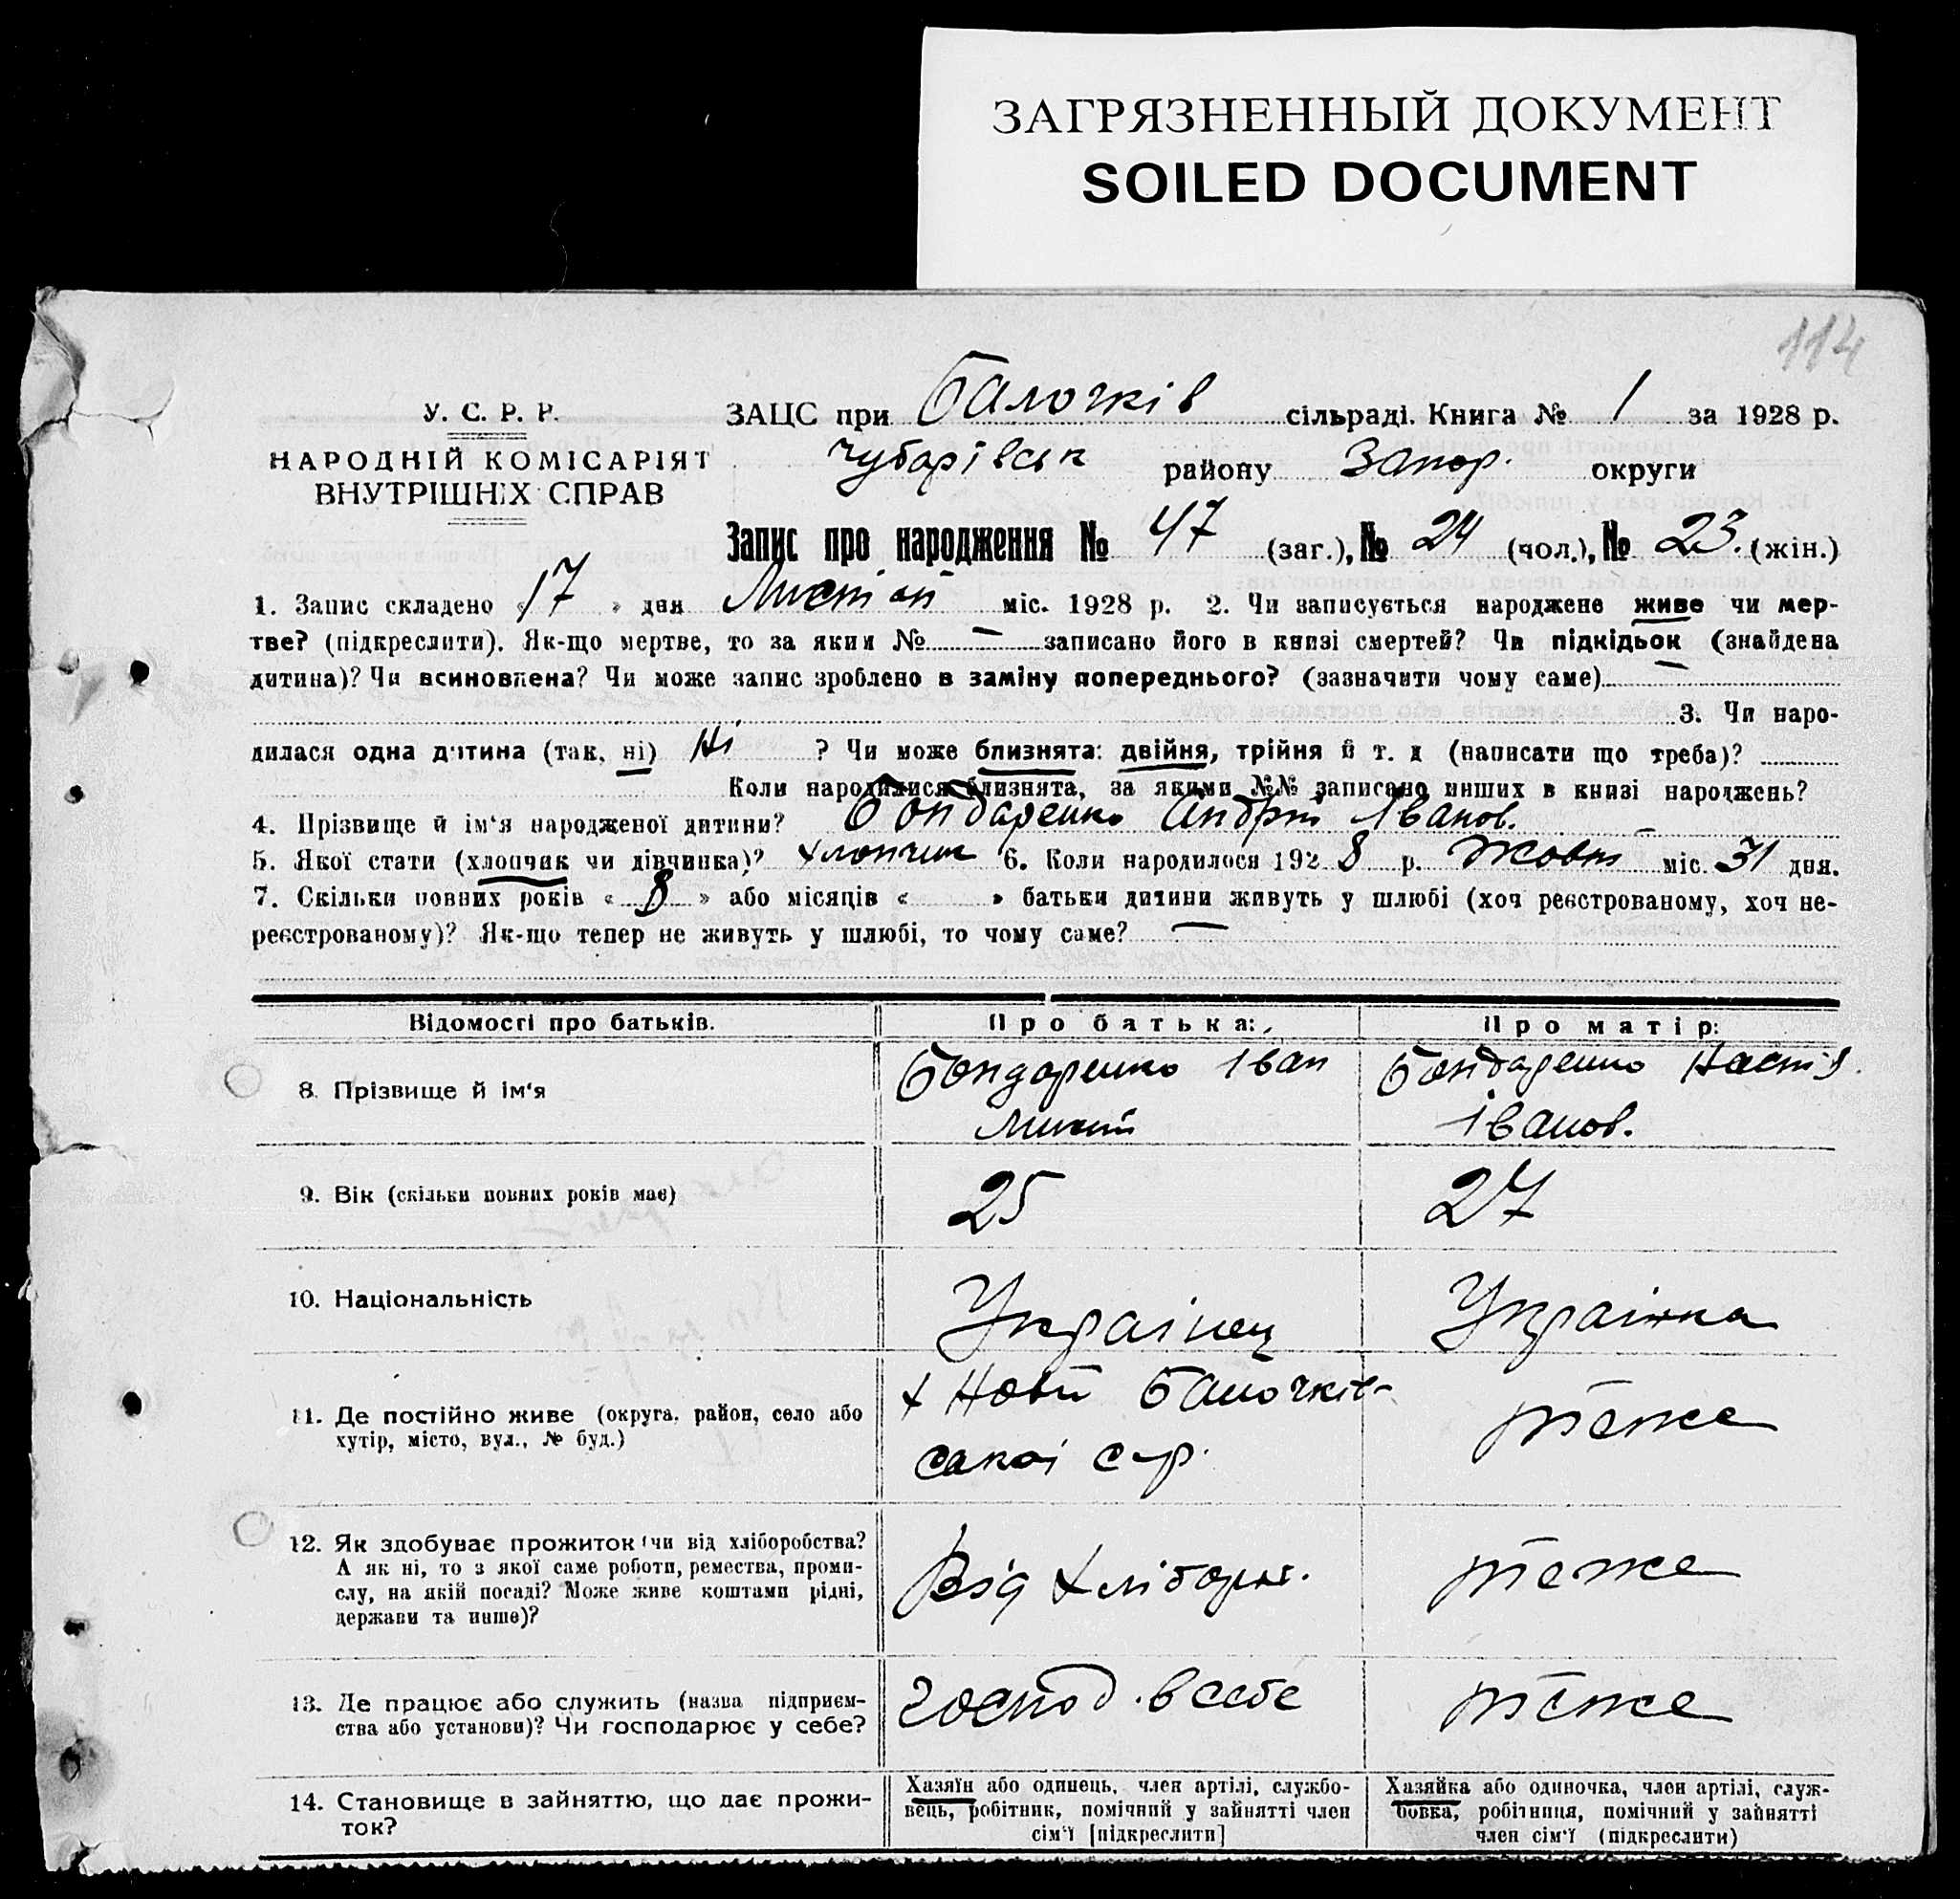 ЗАГРЯЗНЕННЫЙ ДОКУМЕНТ
SOILED DOCUMENT
114
У. С. Р. Р.
НАРОДНІЙ КОМІСАРІЯТ
ВНУТРІШНІХ СПРАВ
ЗАЦС при Балочків сільраді. Книга № 1 за 1928 р.
Чубарівськ району Запор. округи
Запис про народження № 47 (заг.), № 24 (чол.), № 23. (жін.)
1. Запис складено « 17 » дня Листоп міс. 1928 р. 2. Чи записується народжене живе чи мер-
тве? (підкреслити). Як-що мертве, то за яким № — записано його в книзі смертей? Чи підкідьок (знайдена
дитина)? Чи всиновлена? Чи може запис зроблено в заміну попереднього? (зазначити чому саме) —
3. Чи наро-
дилася одна дитина (так, ні) Ні ? Чи може близнята: двійня, трійня й т. д (написати що треба)?
Коли народилися близнята, за якими №№ записано инших в книзі народжень?
4. Прізвище й ім'я народженої дитини? Бондаренко Андрій Іванов. —
5. Якої стати (хлопчик чи дівчинка)? хлопчик 6. Коли народилося 192 8 р. Жовт міс. 31 дня.
7. Скільки повних років « 8 » або місяців « » батьки дитини живуть у шлюбі (хоч реєстрованому, хоч не-
реєстрованому)? Як-що тепер не живуть у шлюбі, то чому саме? —
Відомості про батьків. Про батька: Про матір:
8. Прізвище й ім'я Бондаренко Іван Бондаренко Настя
Іванов.
9. Вік (скільки повних років має) 25 27
10. Національність Украінец Украінка
11. Де постійно живе (округа, район, село або
хутір, місто, вул., № буд.)
х Новий Балочків-
ськоі с-р.
теже
12. Як здобуває прожиток (чи від хліборобства?
А як ні, то з якої саме роботи, ремества, проми-
слу, на якій посаді? Може живе коштами рідні,
держави та инше)?
Від хлібороб.
теже
13. Де працює або служить (назва підприєм-
ства або установи)? Чи господарює у себе?
господ. в себе
теже
14. Становище в зайняттю, що дає прожи-
ток?
Хазяїн або одинець, член артілі, службо-
вець, робітник, помічний у зайнятті член
сім'ї [підкреслити]
Хазяйка або одиночка, член артілі, служ-
бовка, робітниця, помічний у зайнятті
член сім'ї (підкреслити)